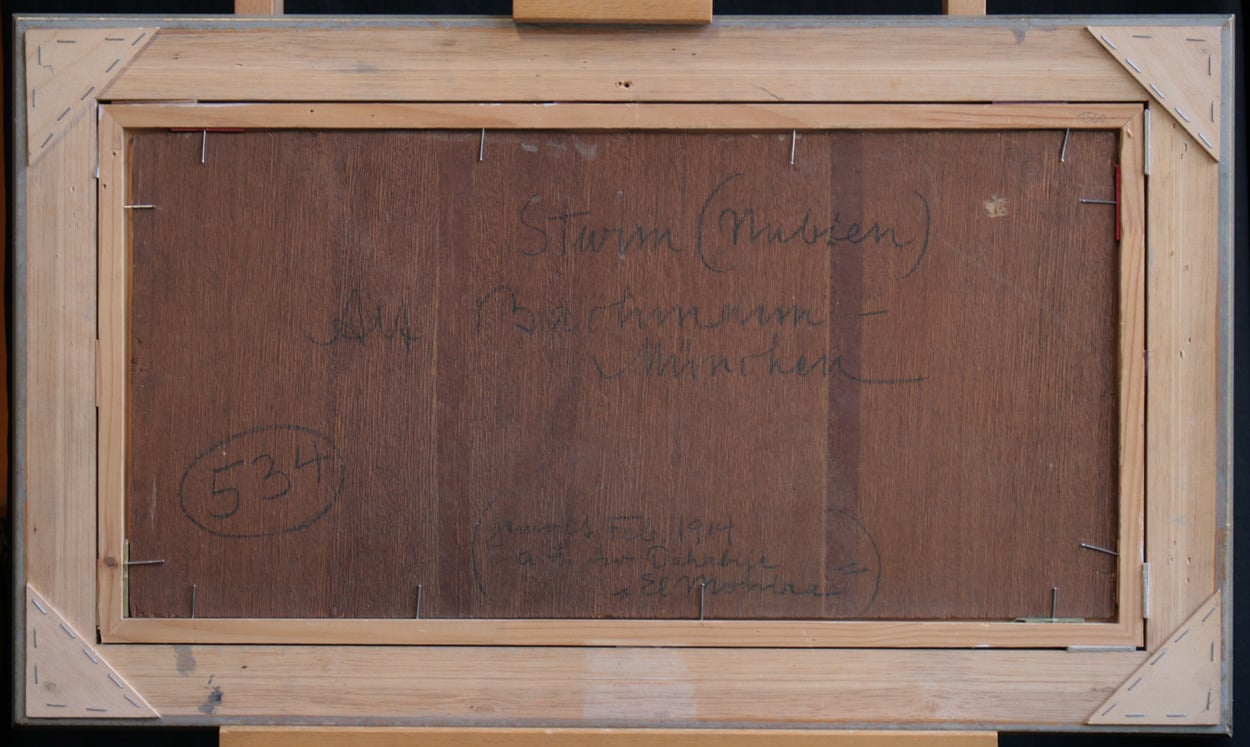 Sturm (Nubien)
Alf Bachmann -
München
534
Feb 1914
auf der Dahabije
"El Monira"